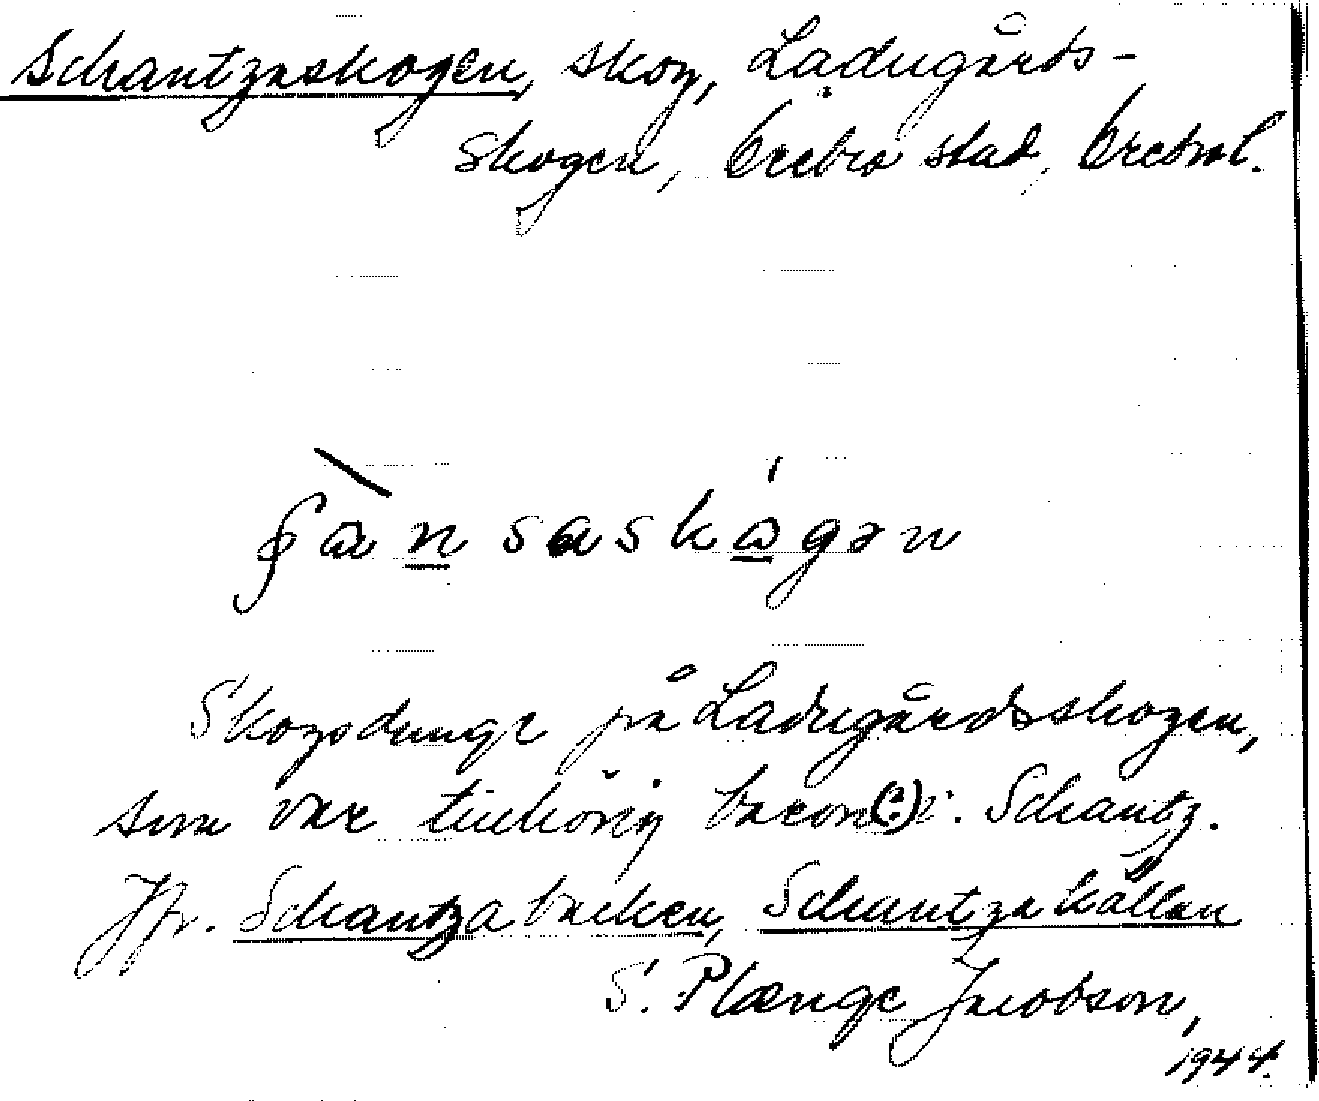 Schantzaskogen, skog, Ladugårds-
skogen, Örebro stad, Örebro l.
ʃànsaskógən
Skogsdunge på Ladugårdsskogen,
som var tillhörig baron(?) v. Schantz.
Jfr. Schantzabacken, Schantzakällan
S. Plænge Jacobson,
1944.